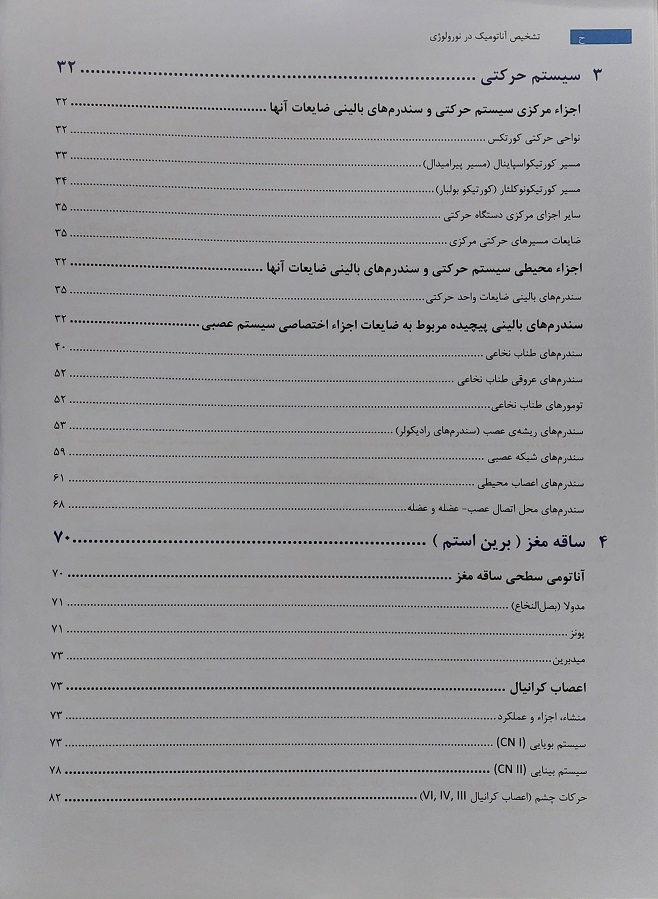 ح تشخیص آناتومیک در نورولوژی
۳ سیستم حرکتی ........ ۳۲
اجزاء مرکزی سیستم حرکتی و سندرم‌های بالینی ضایعات آنها ........ ۳۲
نواحی حرکتی کورتکس ........ ۳۲
مسیر کورتیکواسپاینال (مسیر پیرامیدال) ........ ۳۳
مسیر کورتیکونوکلئار (کورتیکو بولبار) ........ ۳۴
سایر اجزای مرکزی دستگاه حرکتی ........ ۳۵
ضایعات مسیرهای حرکتی مرکزی ........ ۳۵
اجزاء محیطی سیستم حرکتی و سندرم‌های بالینی ضایعات آنها ........ ۳۲
سندرم‌های بالینی ضایعات واحد حرکتی ........ ۳۵
سندرم‌های بالینی پیچیده مربوط به ضایعات اجزاء اختصاصی سیستم عصبی ........ ۳۲
سندرم‌های طناب نخاعی ........ ۴۰
سندرم‌های عروقی طناب نخاعی ........ ۵۲
تومورهای طناب نخاعی ........ ۵۲
سندرم‌های ریشه‌ی عصب (سندرم‌های رادیکولر) ........ ۵۳
سندرم‌های شبکه عصبی ........ ۵۹
سندرم‌های اعصاب محیطی ........ ۶۱
سندرم‌های محل اتصال عصب- عضله و عضله ........ ۶۸
۴ ساقه مغز ( برین استم ) ........ ۷۰
آناتومی سطحی ساقه مغز ........ ۷۰
مدولا (بصل‌النخاع) ........ ۷۱
پونز ........ ۷۱
میدبرین ........ ۷۳
اعصاب کرانیال ........ ۷۳
منشاء، اجزاء و عملکرد ........ ۷۳
سیستم بویایی (CN I) ........ ۷۳
سیستم بینایی (CN II) ........ ۷۸
حرکات چشم (اعصاب کرانیال VI, IV, III) ........ ۸۲